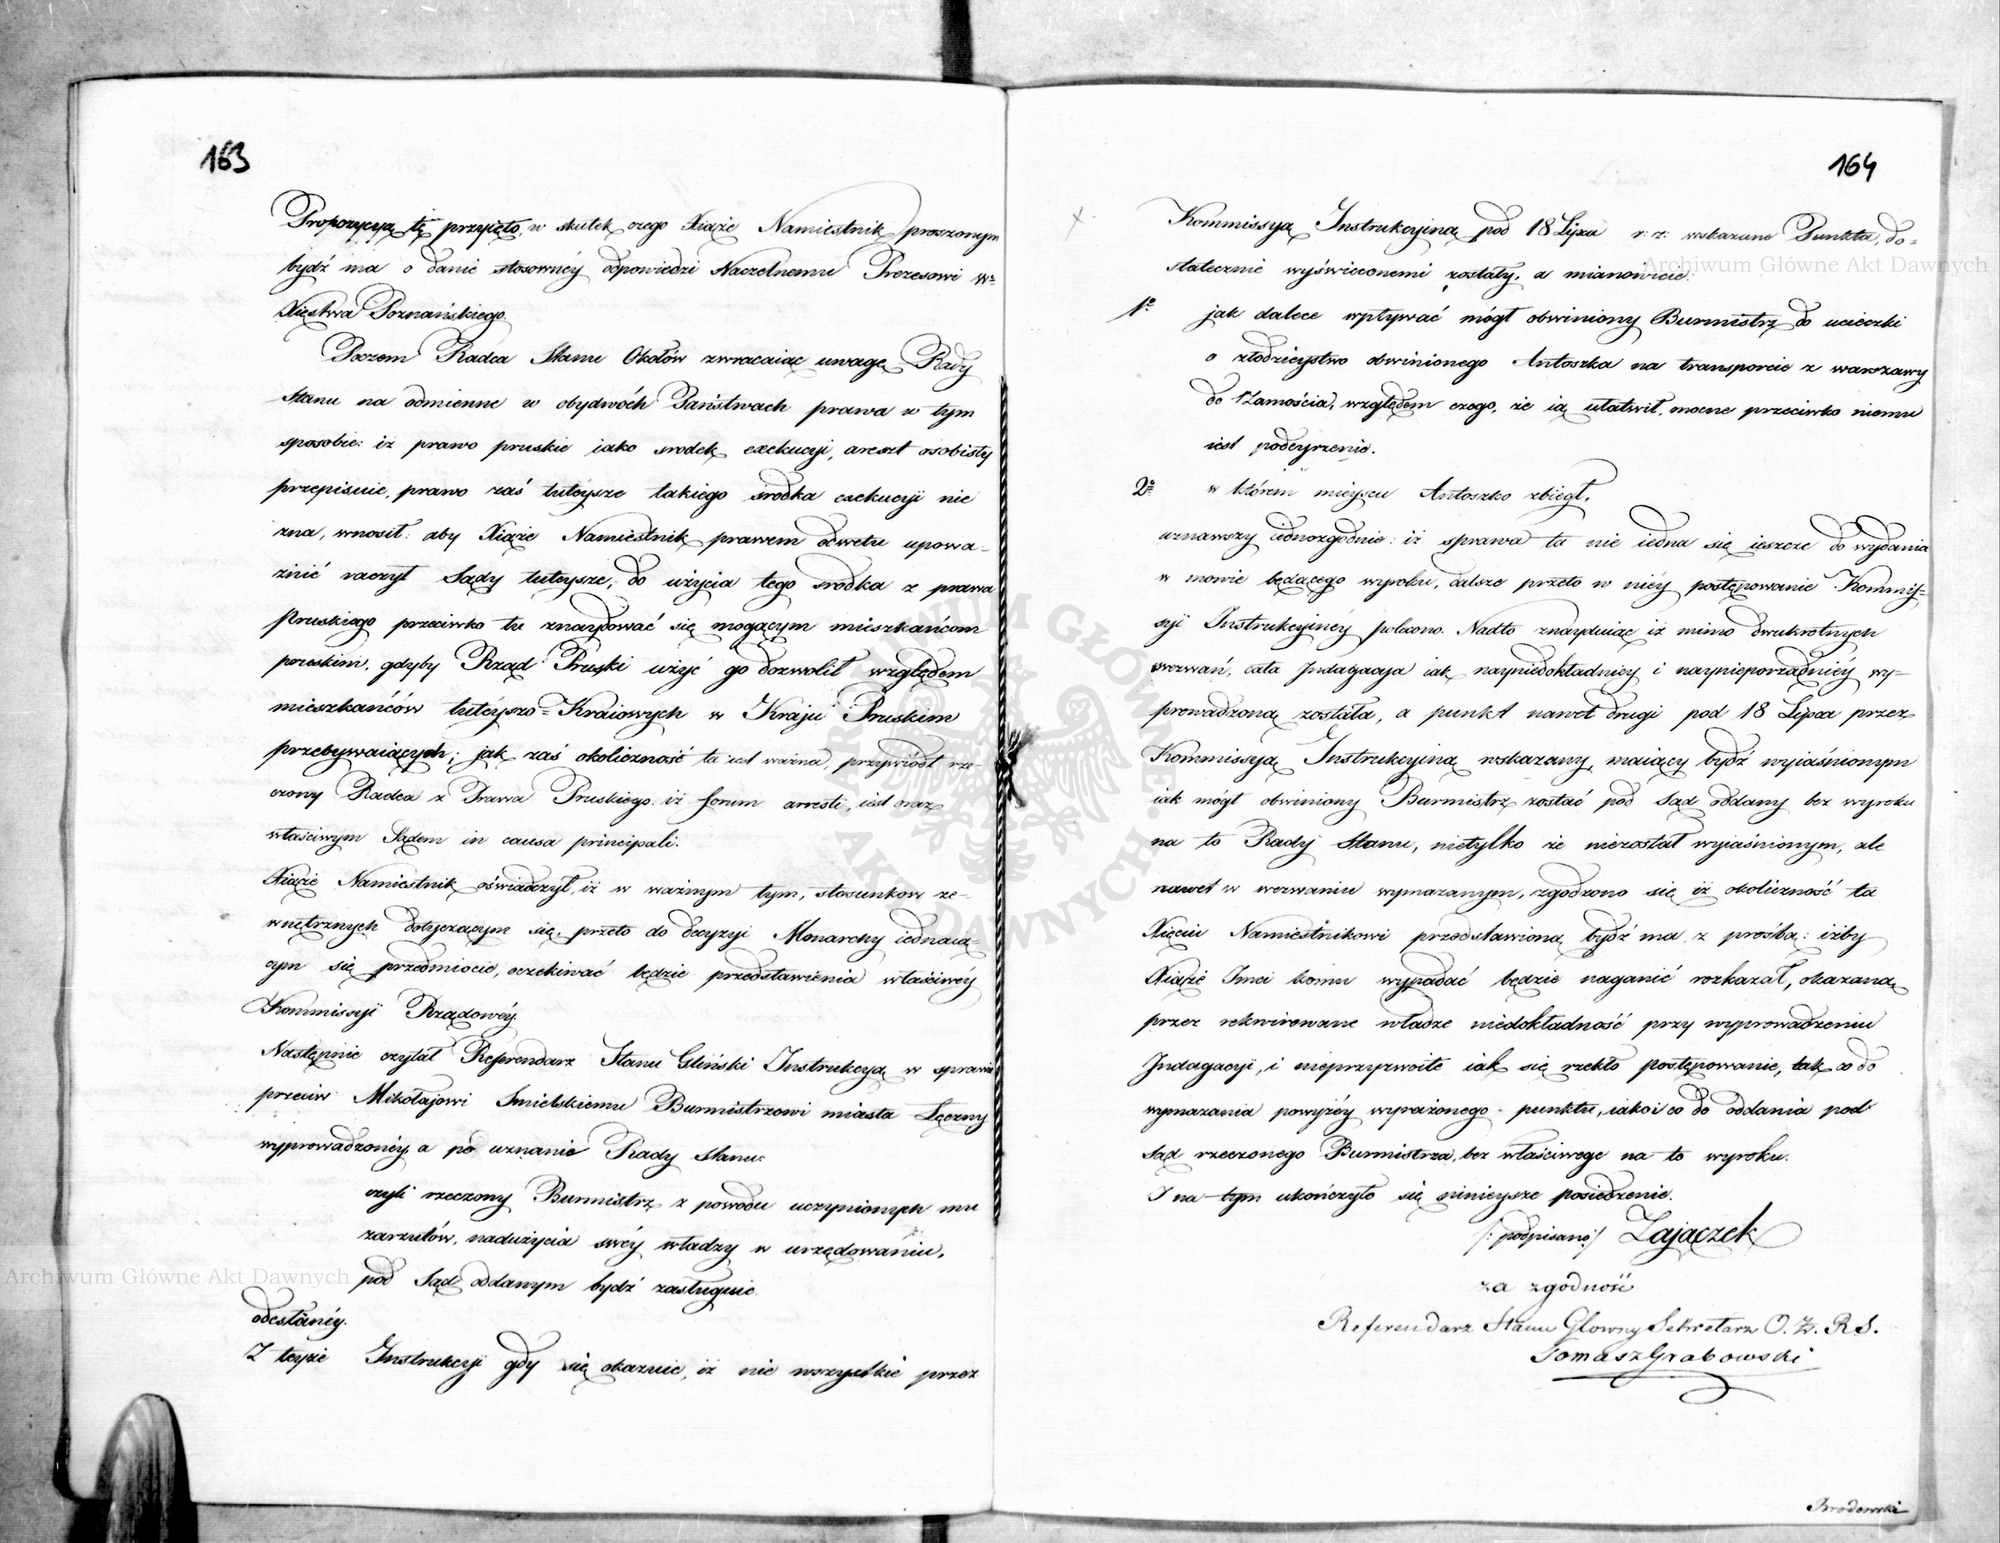 163
Propozycyą tę przyięto, w skutek czego Xiąże Namiestnik proszonym
bydź ma o danie stosownéy odpowiedzi Naczelnemu Prezesowi W.
Xięstwa Poznańskiego.
Poczem Radca Stanu Okołów zwracaiąc uwagę Rady
Stanu na odmienne w obydwóch Państwach prawa w tym
sposobie: iż prawo pruskie iako srodek exekucyi, areszt osobisty
przepisuie, prawo zaś tuteysze takiego srodka exekucyi nie
zna, wnosił: aby Xiąże Namiestnik prawem odwetu upowa-
żnić raczył Sądy tuteysze, do użycia tego srodka z prawa
pruskiego przeciwko tu znaydować się mogącym mieszkańcom
pruskim, gdyby Rząd Pruski użyć go dozwolił względem
mieszkańców tutéyszo=Kraiowych w Kraju Pruskim
przebywaiących; jak zaś okoliczność ta iest ważna, przywiódł rze-
czony Radca z Prawa Pruskiego: iż forum arresti, iest oraz
właściwym Sądem in causa principali.
Xiąże Namiestnik oświadczył, iż w ważnym tym, stosunkow ze-
wnętrznych dotyczącym się, przeto do decyzyi Monarchy iednaią-
cym się przedmiocie, oczekiwać będzie przedstawienia właściwéy
Kommissyi Rządowéy.
Następnie czytał Referendarz Stanu Gliński Instrukcyą w sprawie
przeciw Mikołajowi Smielskiemu Burmistrzowi miasta Łęczny
wyprowadzonéy, a po uznanie Rady Stanu:
czyli rzeczony Burmistrz z powodu uczynionych mu
zarzutów, nadużycia swéy władzy w urzędowaniu,
pod Sąd oddanym bydź zasługuie.
odesłanéy.
Z teyże Instrukcyi gdy się okazuie, iż nie wszystkie przez
164
Kommissyą Instrukcyiną pod 18 Lipca r: z: wskazane Punkta, do-
statecznie wyświeconemi zostały, a mianowicie:
1º jak dalece wpływać mógł obwiniony Burmistrz do ucieczki
o złodzieystwo obwinionego Antoszka na transporcie z warszawy
do Zamościa, względem czego, że ią ułatwił, mocne przeciwko niemu
iest podeyrzenie.
2º w którem mieyscu Antoszko zbiegł,
uznawszy iednozgodnie: iż sprawa ta nie iedna się ieszcze do wydania
w mowie będącego wyroku, dalsze przeto w niéy postępowanie Kommis-
syi Instrukcyinéy polecono. Nadto znayduiąc iż mimo dwukrotnych
wezwań, cała Indagacya iak nayniedokładniéy i naynieporządniéy wy-
prowadzoną została, a punkt nawet drugi pod 18 Lipca przez
Kommissyą Instrukcyiną wskazany, maiący bydź wyiaśnionym
iak mógł obwiniony Burmistrz zostać pod Sąd oddany bez wyroku
na to Rady Stanu, nietylko że niezostał wyiaśnionym, ale
nawet w wezwaniu wymazanym, zgodzono się iż okoliczność ta
Xięciu Namiestnikowi przedstawioną bydź ma z prośbą: iżby
Xiąże Imci komu wypadać będzie naganić rozkazał, okazaną
przez rekwirowane władze niedokładność przy wyprowadzeniu
Indagacyi, i nieprzyzwoite iak się rzekło postępowanie, tak co do
wymazania powyżéy wyrażonego punktu, iako i co do oddania pod
Sąd rzeczonego Burmistrza, bez właściwego na to wyroku.
I na tym ukończyło się ninieysze posiedzenie.
/: podpisano:/ Zajączek
za zgodność
Referendarz Stanu Głowny Sekretarz O. Z. R S.
Tomasz Grabowski
Brodowski
Archiwum Główne Akt Dawnych
Archiwum Główne Akt Dawnych
ARCHIWUM GŁÓWNE AKT DAWNYCH